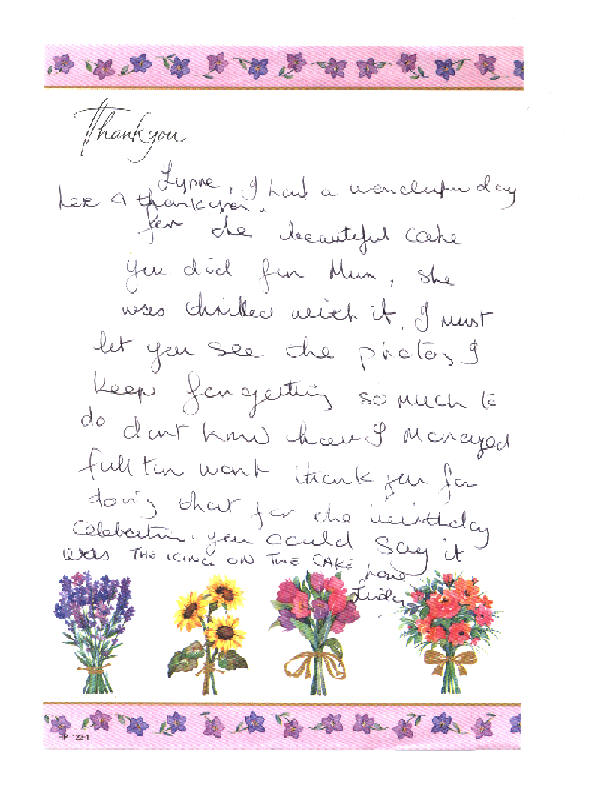 Thankyou
Lynne, I had a wonderful day
her & thankyou.
for the beautiful cake
you did for Mum, she
was thrilled with it, I must
let you see the photos, I
keep forgetting so much to
do dont know how I managed
full time work thank you for
doing that for the birthday
Celebration, you could say it
was THE ICING ON THE CAKE, love